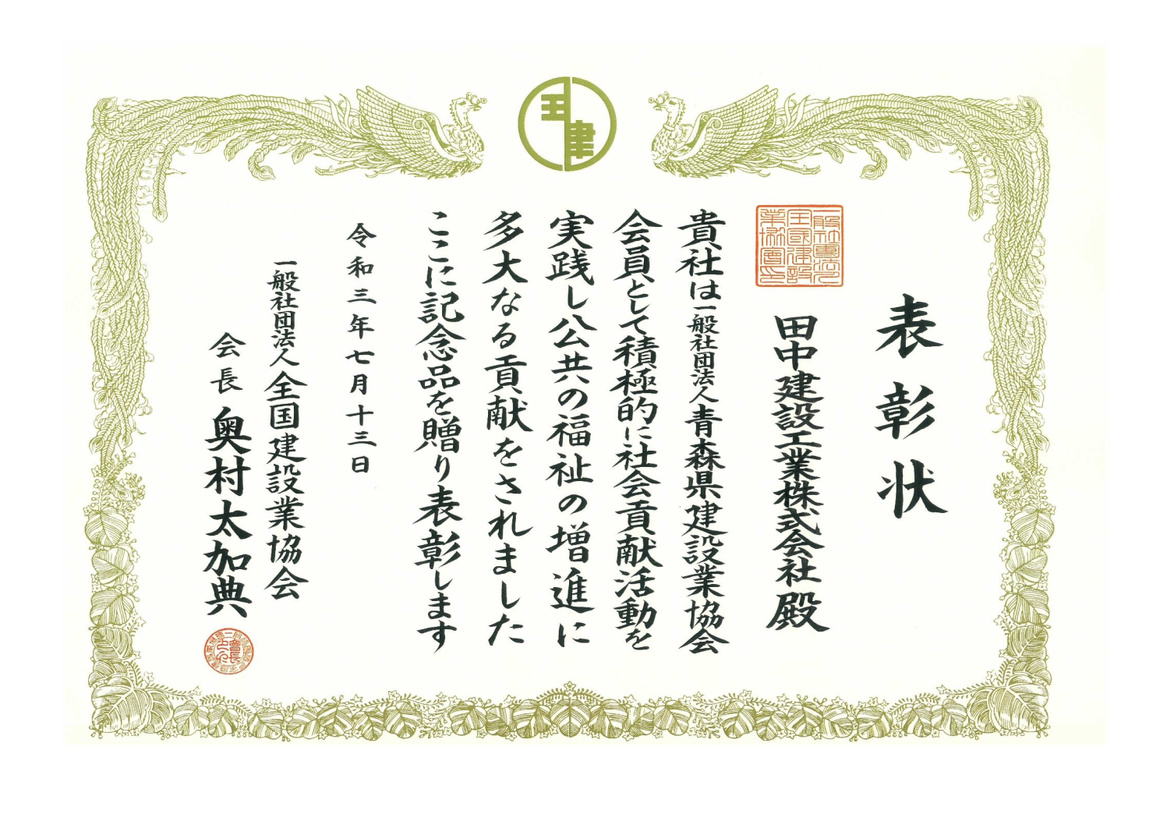 表彰状
田中建設工業株式会社 殿
貴社は一般社団法人青森県建設業協会
会員として積極的に社会貢献活動を
実践し公共の福祉の増進に
多大なる貢献をされました
ここに記念品を贈り表彰します
令和三年七月十三日
一般社団法人全国建設業協会
会長 奥村太加典
一般社団法人
全国建設
業協会印